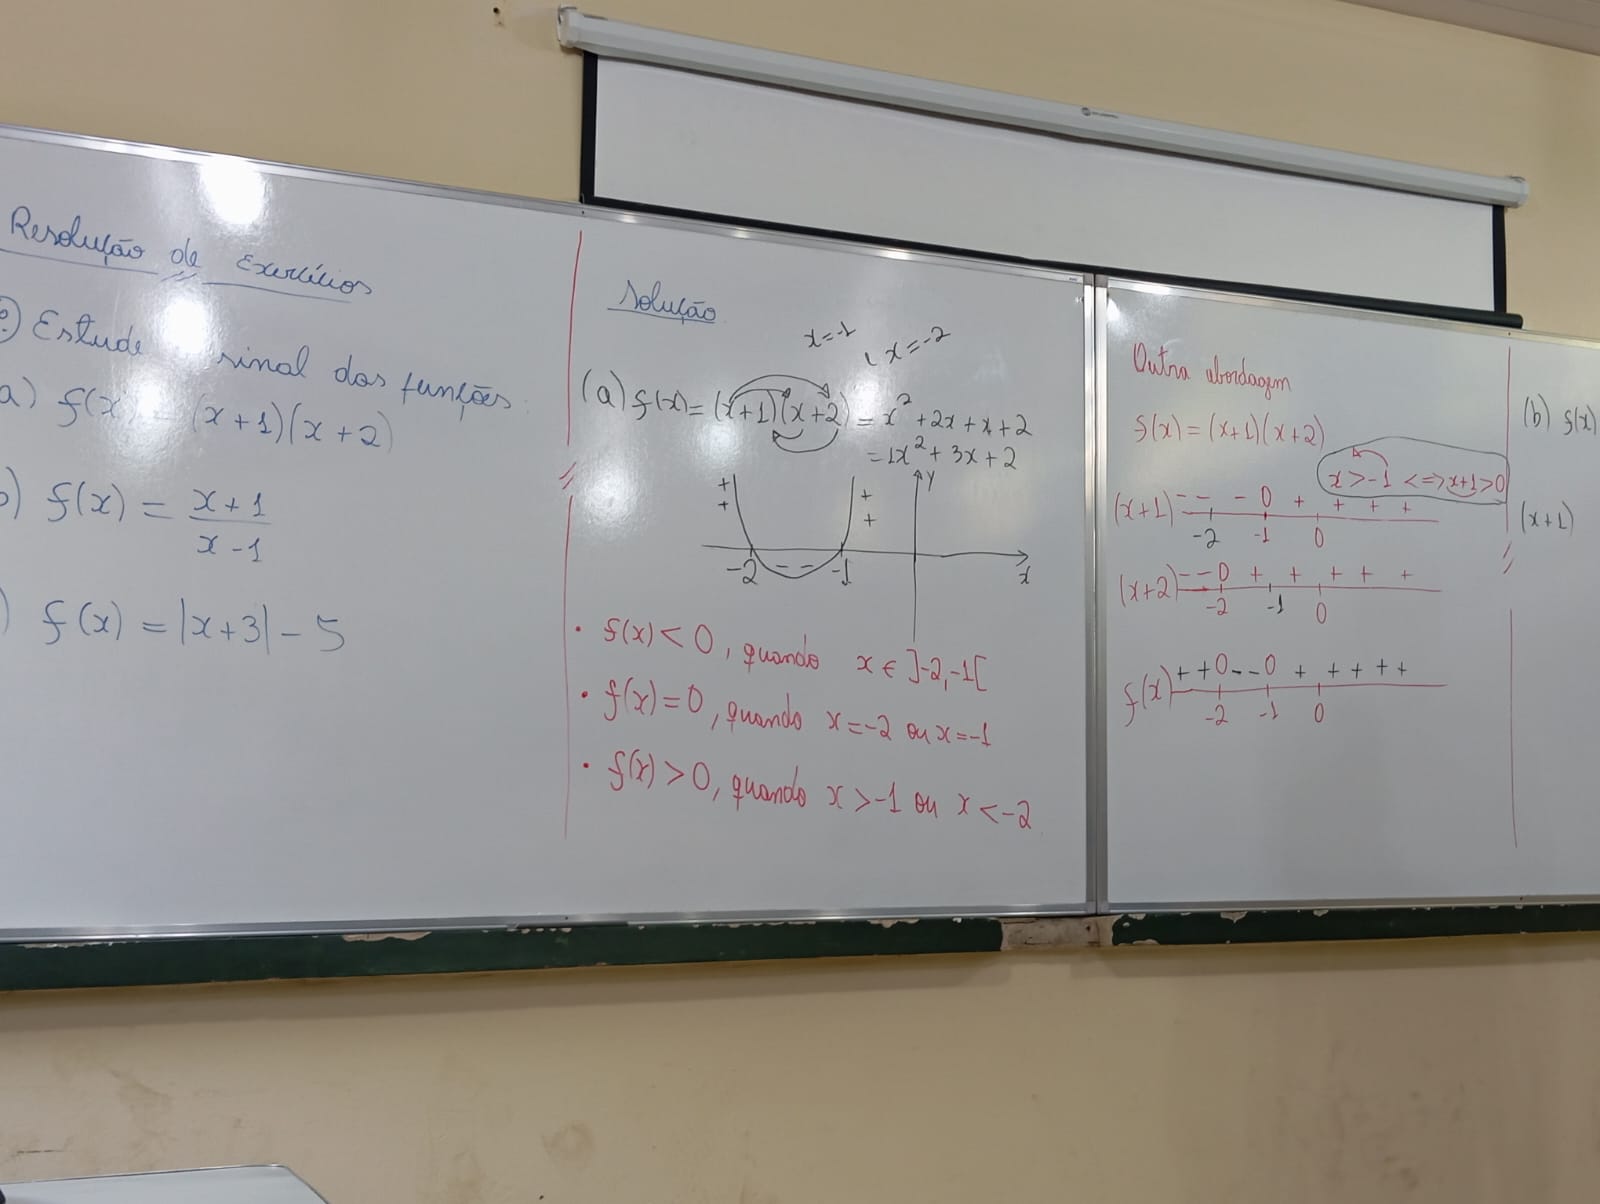 Resolução de Exercícios
Estude sinal das funções:
a) f(x) = (x+1)(x+2)
) f(x) = x+1
x-1
) f(x) = |x+3| - 5
Solução
x=-1 x=-2
(a) f(x) = (x+1)(x+2) = x² + 2x + x + 2
= 1x² + 3x + 2
+ + y
+ +
-2 - - -1 x
• f(x) < 0, quando x ∈ ]-2,-1[
• f(x) = 0, quando x=-2 ou x=-1
• f(x) > 0, quando x >-1 ou x <-2
Outra abordagem
f(x) = (x+1)(x+2)
x >-1 <=> x+1>0
(x+1) - - - 0 + + + +
-2 -1 0
(x+2) - - 0 + + + + +
-2 -1 0
f(x) + + 0 - - 0 + + + + +
-2 -1 0
(b) f(x)
(x+1)